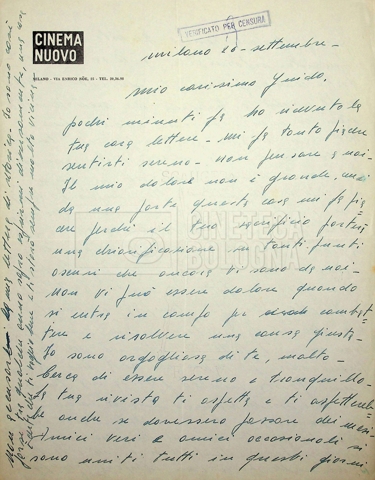 CINEMA
NUOVO
MILANO - VIA ENRICO NÖE, 23 - TEL.
VERIFICATO PER CENSURA
milano 20 - settembre -
mio carissimo Guido.
pochi minuti fa ho ricevuto la
tua cara lettera - mi fa tanto piacere
sentirti sereno - non pensare a noi -
Il mio dolore non è grande, anzi
da una parte questa cosa mi fa pia
cere perché il tuo sacrificio porterà
una chiarificazione in tanti punti
oscuri che ancora vi sono da noi -
Non vi può essere dolore quando
si entra in campo per combat
tere e risolvere una causa giusta -
Io sono orgogliosa di te, molto -
cerca di essere sereno e tranquillo -
la tua rivista ti aspetta e ti aspetterebbe
anche se dovessero passare dei mesi -
Amici veri e amici occasionali si
sono uniti tutti in questi giorni
CINETECA
BOLOGNA